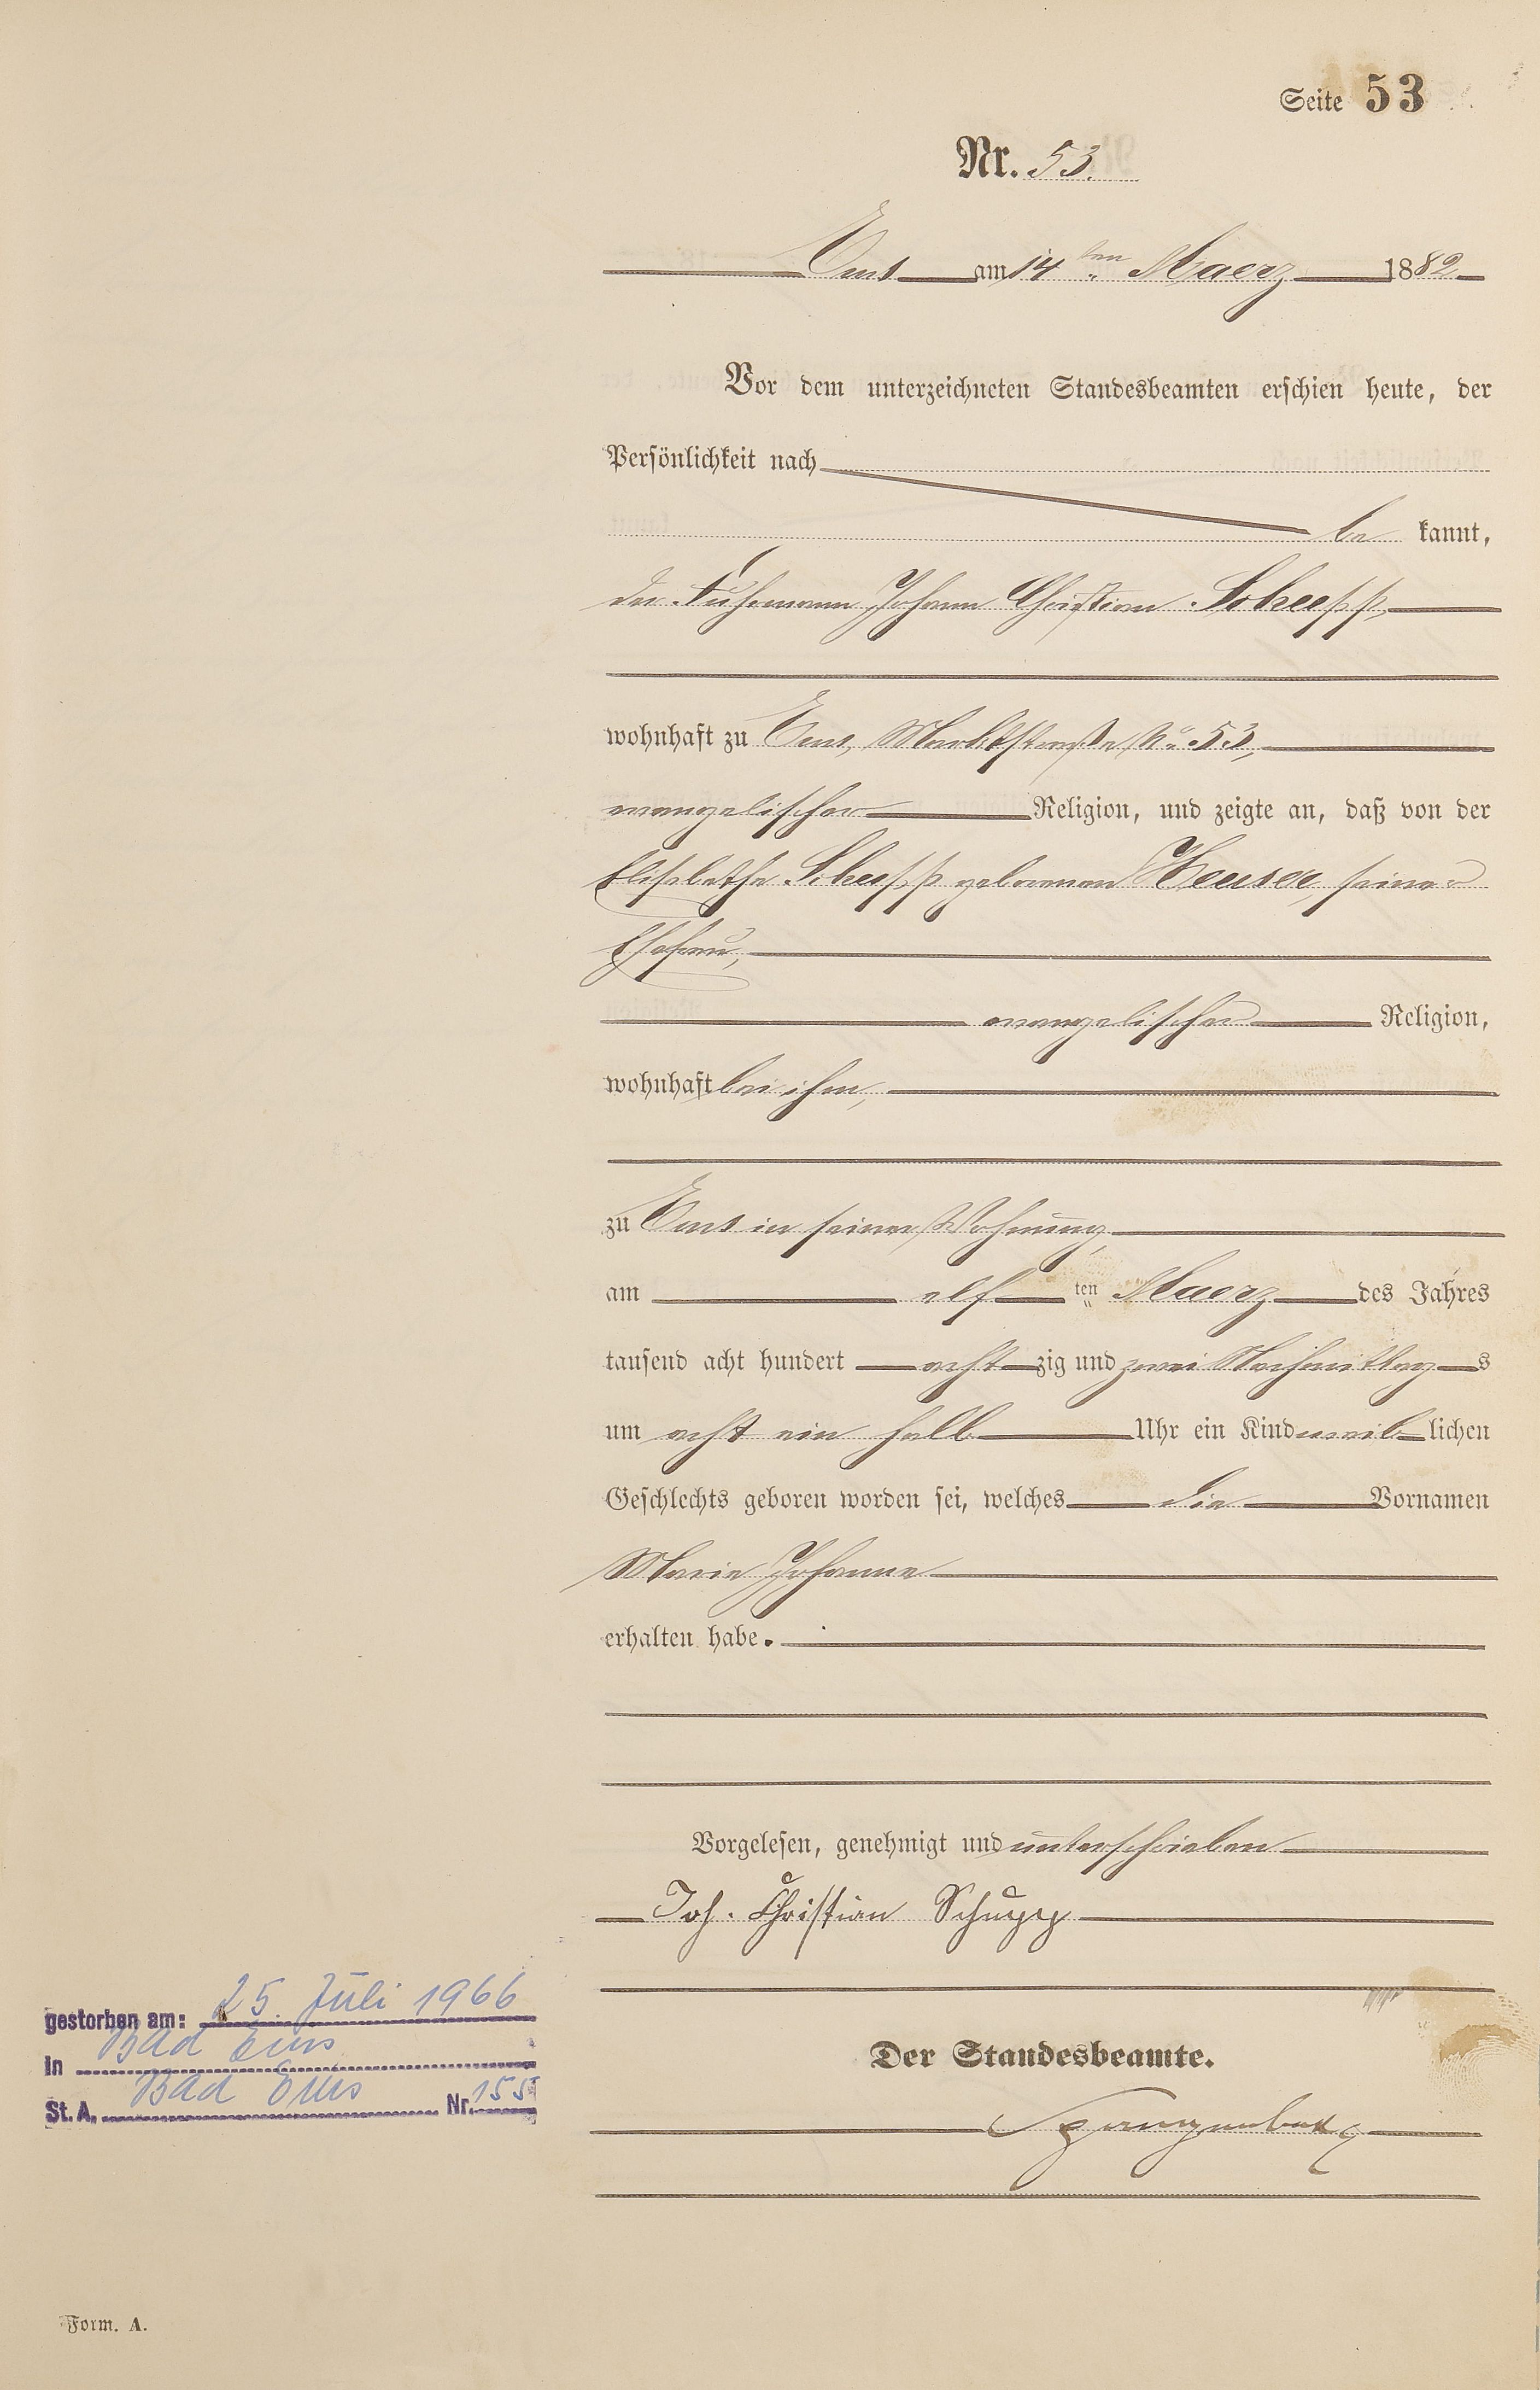 Seite 53
Nr. 53.
Ems am 14ten Maerz 1882
Vor dem unterzeichneten Standesbeamten erschien heute, der
Persönlichkeit nach
be kannt,
der Fuhrmann Johann Christian Schupp,
wohnhaft zu Ems, Marktstraße No 53,
evangelischer Religion, und zeigte an, daß von der
Elisabethe Schupp geborenen Heuser, seiner
Ehefrau,
evangelischer Religion,
wohnhaft bei ihm,
zu Ems in seiner Wohnung,
am elf ten Maerz des Jahres
tausend acht hundert acht zig und zwei Nachmittag s
um acht ein halb Uhr ein Kind weib lichen
Geschlechts geboren worden sei, welches die Vornamen
Marie Johanne
erhalten habe.
Vorgelesen, genehmigt und unterschrieben
Joh. Christian Schupp
gestorben am: 25. Juli 1966
in Bad Ems
St. A. Bad Ems Nr. 155
Der Standesbeamte.
Spangenberg
Form. A.